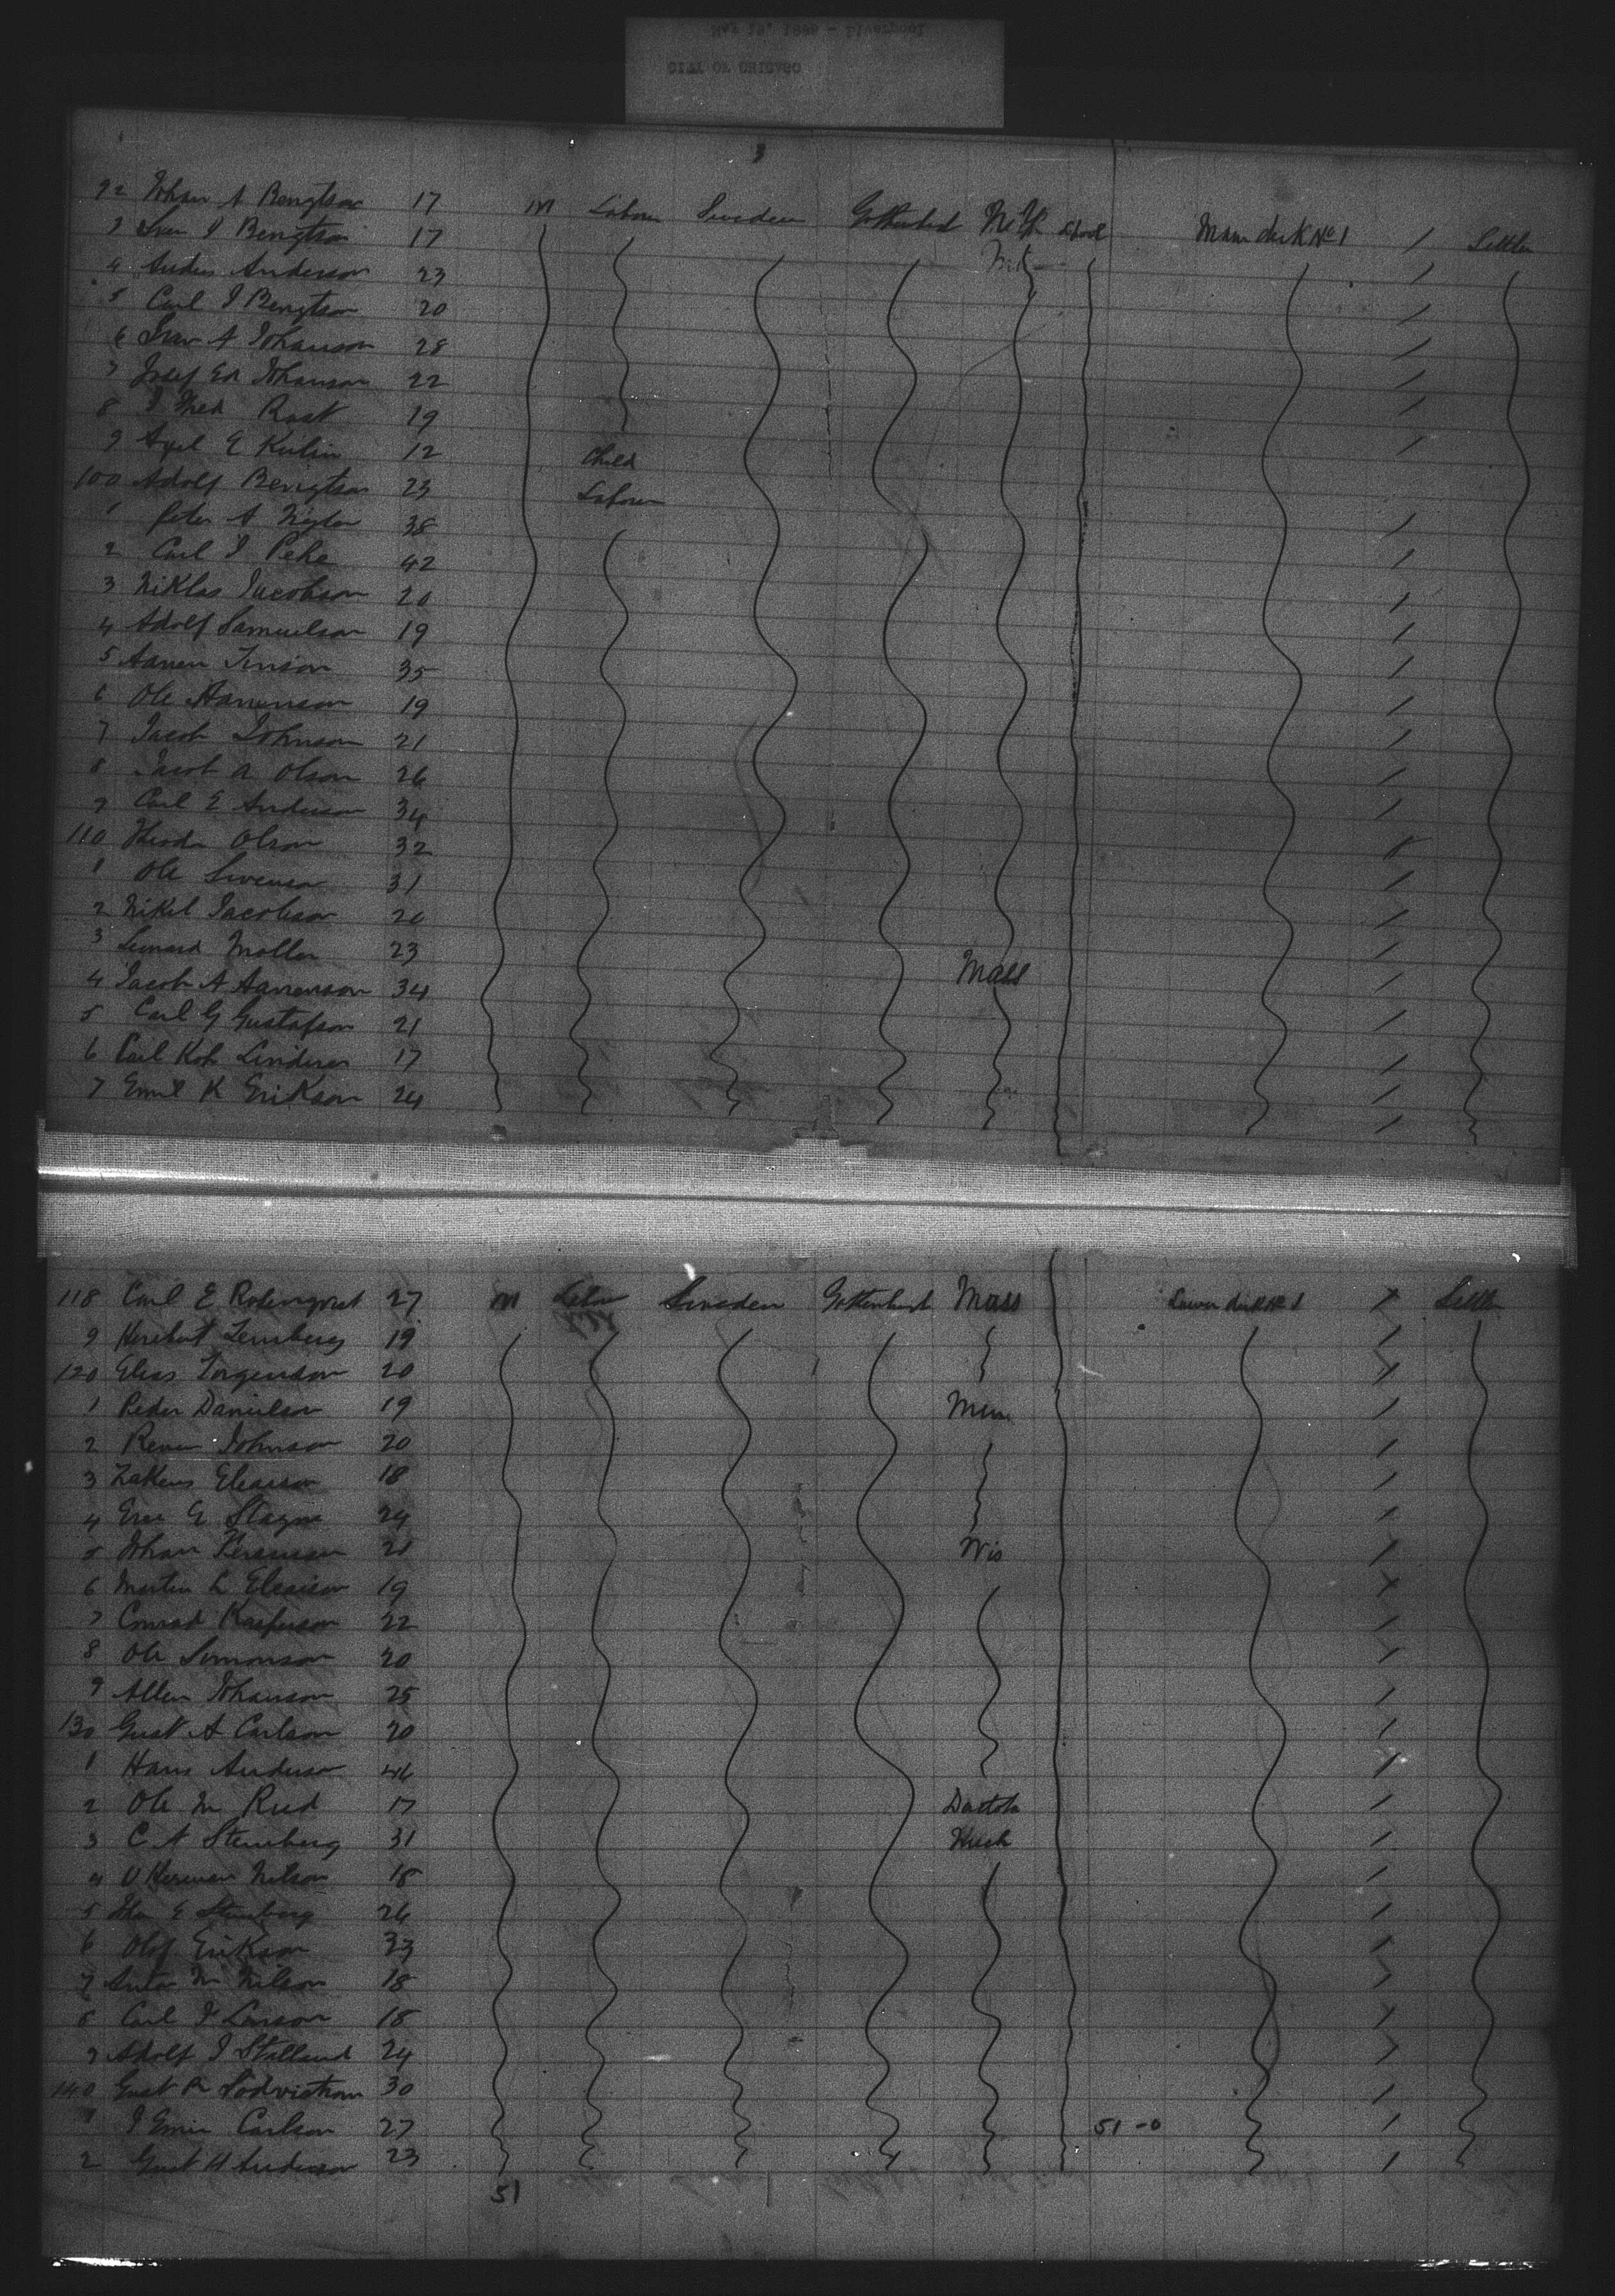 CITY OF CHICAGO
92 Johan A Bengtson 17 M Labour Sweden Gothenbed N.Y. Main deck No 1 / Settler
3 Sven J Bengtson 17
4 Anders Anderson 23 /
5 Carl J Bengtson 20 /
6 Ivan A Johanson 28 /
7 Josef Ed Johanson 22 /
8 J Fred Rast 19 /
9 Axel E Kulin 12 Child /
100 Adolf Bengtson 23 Labour
1 Peter A 38 /
2 Carl J Pehe 42 /
3 Niklas Jacobson 20 /
4 Adolf Samuelson 19 /
5 Aanen Tenison 35 /
6 Ole Aanenson 19 /
7 Jacob Johnson 21 /
8 Jacob A Olson 26 /
9 Carl E Anderson 34 /
110 Olson 32 /
1 Ole Swenson 31 /
2 Nikel Jacobson 20 /
3 Lenard Moller 23 Mass /
4 Jacob A Aanenson 34 /
5 Carl G Gustafson 21 /
6 Carl Rob Linderen 17 /
7 Emil K Erikson 24 /
118 Carl E Rosenqvist 27 M Labour Sweden Gottenburgh Mass Lower deck No 1 / Settler
9 Herebert Lernberg 19 /
120 Elias Torgenson 20 /
1 Peder Danielson 19 Minn /
2 Johnson 20 /
3 Zakeus Eleason 18 /
4 G 24 /
5 Johan 21 Wis /
6 Martin L Eleaison 19 /
7 Conrad Kasperson 22 /
8 Ole Simonson 20 /
9 Allen Johanson 25 /
130 Gust A Carlson 20 /
1 Hans Anderson 46 /
2 Ole M Rud 17 /
3 C A Sternberg 31 /
4 O Herman Nilson 18 /
5 E Sternberg 26 /
6 Olof Erikson 33 /
7 Anton M Nilson 18 /
8 Carl J Larson 18 /
9 Adolf J Stalland 24 /
140 Gust R 30 /
1 J Emil Carlson 27 51-0 /
2 Gust H Anderson 23 /
51